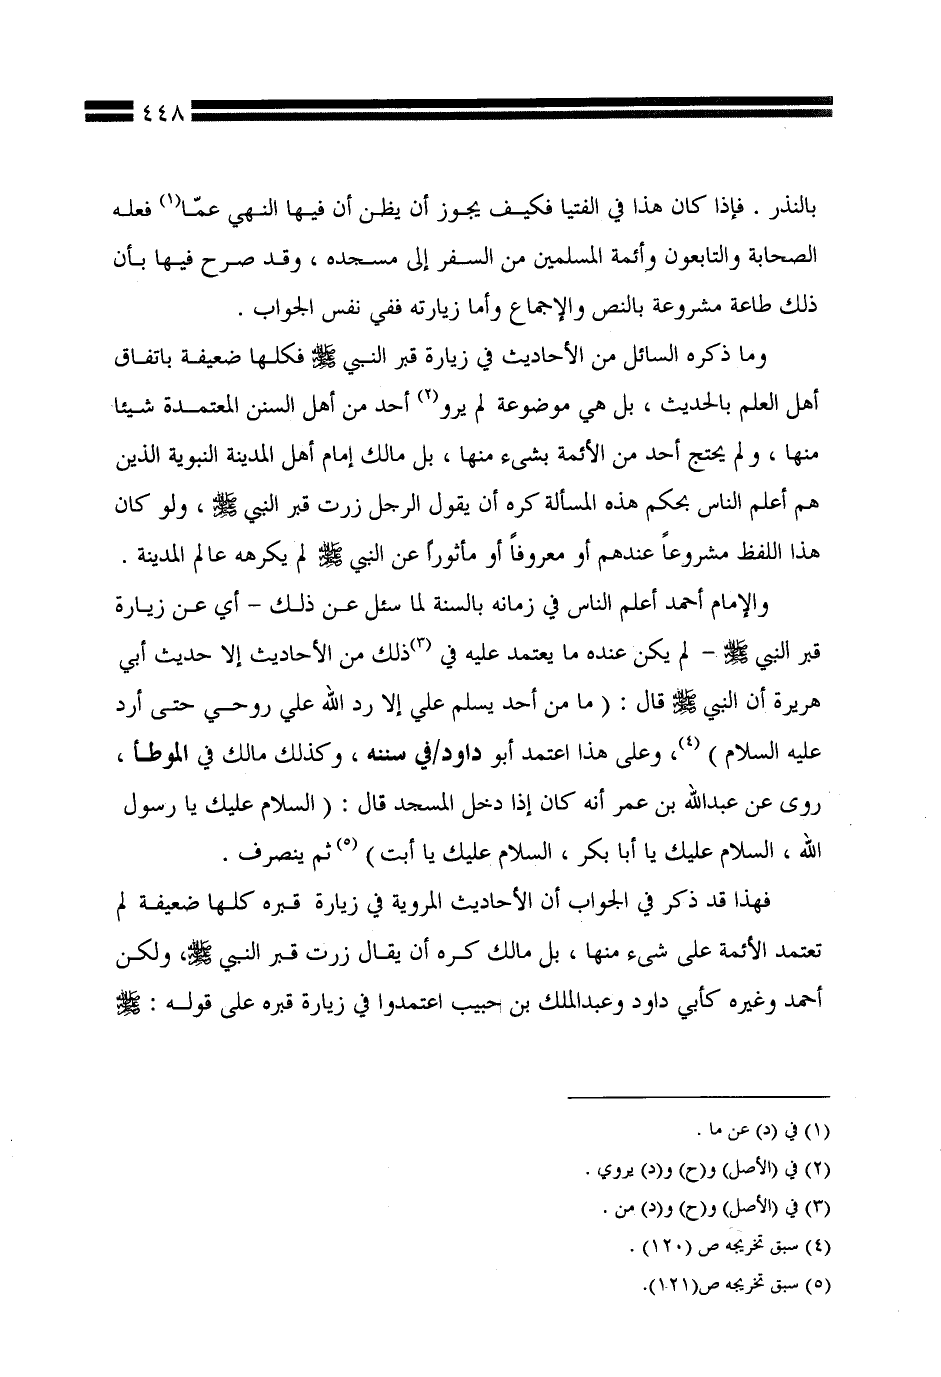 ٤٤٨
بالنذر . فإذا كان هذا في الفتيا فكيف يجوز أن يظن أن فيها النهي عمّا(١) فعله
الصحابة والتابعون وأئمة المسلمين من السفر إلى مسجده ، وقد صرح فيها بأن
ذلك طاعة مشروعة بالنص والإجماع وأما زيارته ففي نفس الجواب .
وما ذكره السائل من الأحاديث في زيارة قبر النبي ﷺ فكلها ضعيفة باتفاق
أهل العلم بالحديث ، بل هي موضوعة لم يرو(٢) أحد من أهل السنن المعتمدة شيئا
منها ، و لم يحتج أحد من الأئمة بشيء منها ، بل مالك إمام أهل المدينة النبوية الذين
هم أعلم الناس بحكم هذه المسألة كره أن يقول الرجل زرت قبر النبي ﷺ ، ولو كان
هذا اللفظ مشروعاً عندهم أو معروفاً أو مأثوراً عن النبي ﷺ لم يكرهه عالم المدينة .
والإمام أحمد أعلم الناس في زمانه بالسنة لما سئل عن ذلك – أي عن زيارة
قبر النبي ﷺ – لم يكن عنده ما يعتمد عليه في (٣)ذلك من الأحاديث إلا حديث أبي
هريرة أن النبي ﷺ قال : ( ما من أحد يسلم علي إلا رد الله علي روحي حتى أرد
عليه السلام ) (٤)، وعلى هذا اعتمد أبو داود/في سننه ، وكذلك مالك في الموطأ ،
روى عن عبدالله بن عمر أنه كان إذا دخل المسجد قال : ( السلام عليك يا رسول
الله ، السلام عليك يا أبا بكر ، السلام عليك يا أبت ) (٥) ثم ينصرف .
فهذا قد ذكر في الجواب أن الأحاديث المروية في زيارة قبره كلها ضعيفة لم
تعتمد الأئمة على شيء منها ، بل مالك كره أن يقال زرت قبر النبي ﷺ، ولكن
أحمد وغيره كأبي داود وعبدالملك بن حبيب اعتمدوا في زيارة قبره على قوله : ﷺ
(١) في (د) عن ما .
(٢) في (الأصل) و(ح) و(د) يروي .
(٣) في (الأصل) و(ح) و(د) من .
(٤) سبق تخريجه ص (١٢٠) .
(٥) سبق تخريجه ص(١٢١).